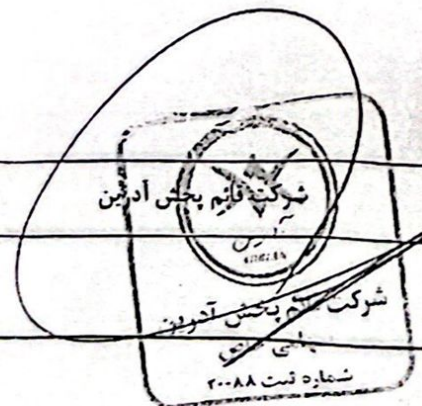 شرکت قائم پخش آدرین
آدرین
ADRIAN
شرکت قائم پخش آدرین
شماره ثبت ۲۰۰۸۸